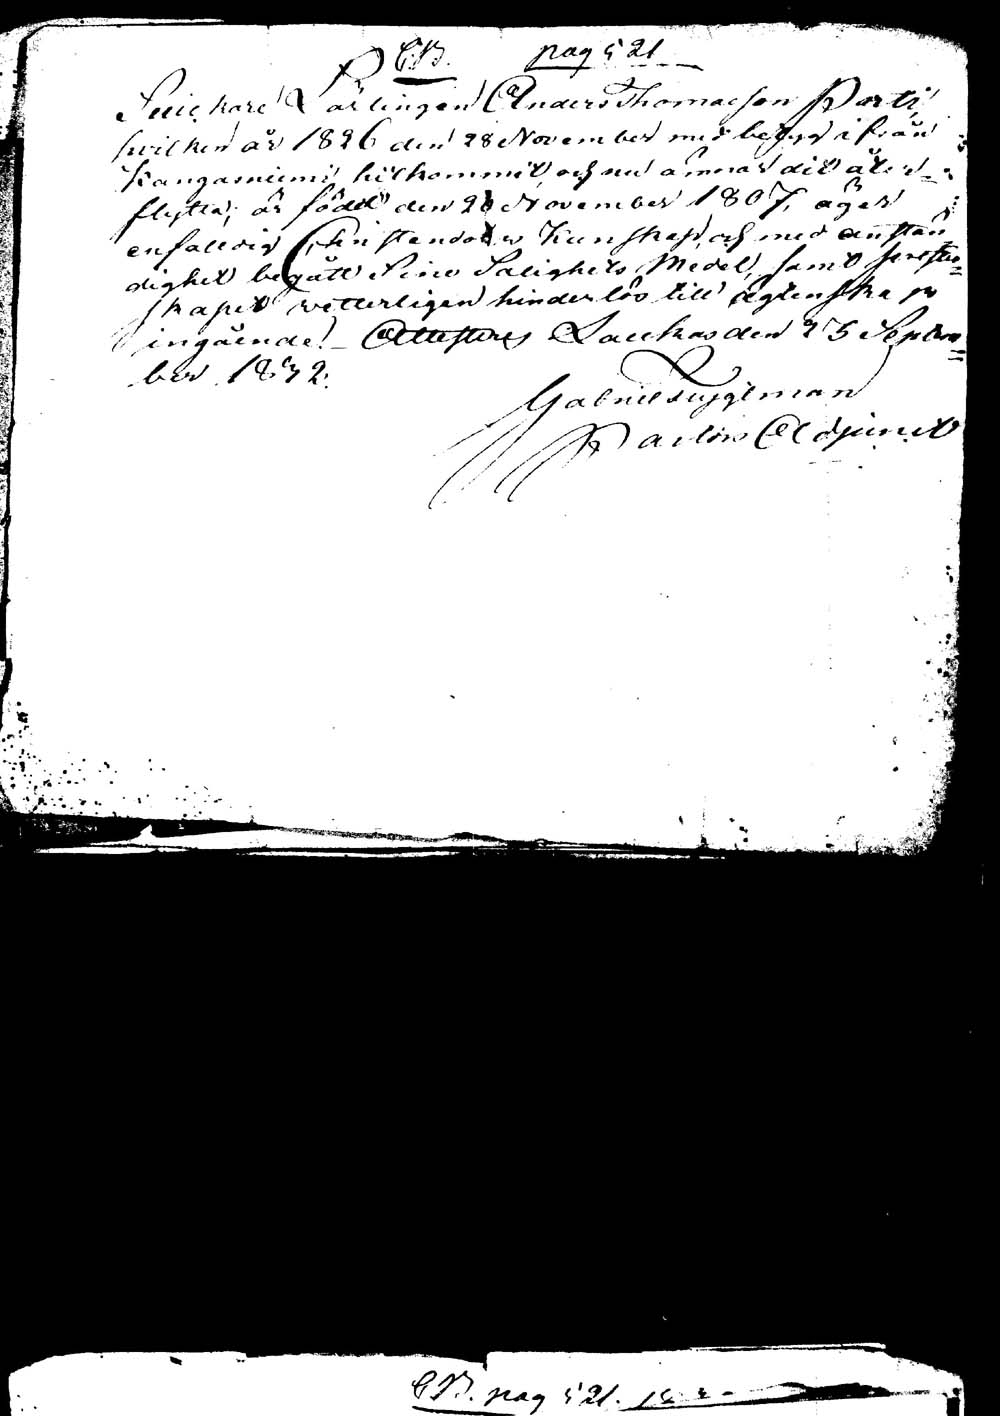 C.B. pag 521
Snickare Lärlingen Anders Thomasson Parti,
hvilken år 1826 den 28 November med betyg ifrån
Kangasniemi hitkommit, och nu ämnar dit åter-
flytta; är född den 26 November 1807, äger
enfaldig Christendoms Kunskap, och med anstän
dighet begått Sine Salighets Medel, samt
skapet vetterligen hinderlös till ägtenskaps
ingående! Attesteres Laukas den 25 Septem=
ber 1832.
Gabriel
Pastors Adjunct
C.B. pag 521.